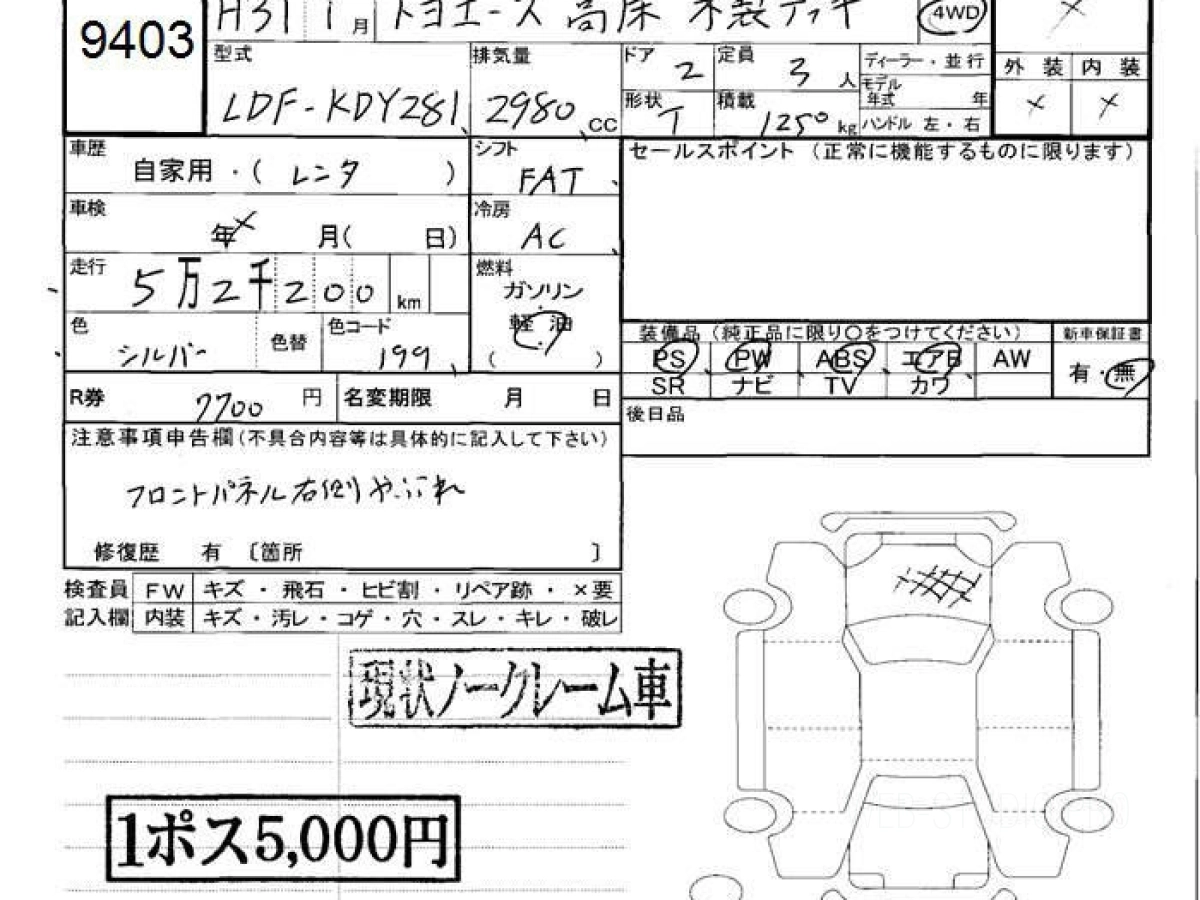 9403
H31 1月 トヨエース 高床 木製デッキ 4WD ×
型式 LDF-KDY281 排気量 2980 cc ドア 2 定員 3人 ディーラー・並行 外装 内装
形状 T 積載 1250 kg モデル年式 年 × ×
ハンドル 左・右
車歴 自家用・( レンタ ) シフト FAT セールスポイント (正常に機能するものに限ります)
車検 年 × 月( 日) 冷房 AC
走行 5万2千200 km 燃料 ガソリン
軽油
( ・ )
色 シルバー 色替 色コード 199
装備品(純正品に限り○をつけてください) 新車保証書
PS PW ABS エアB AW 有・無
SR ナビ TV カワ
R券 7700 円 名変期限 月 日
後日品
注意事項申告欄(不具合内容等は具体的に記入して下さい)
フロントパネル右側やぶれ
修復歴 有 〔箇所 〕
検査員 FW キズ・飛石・ヒビ割・リペア跡・×要
記入欄 内装 キズ・汚レ・コゲ・穴・スレ・キレ・破レ
現状ノークレーム車
1ポス5,000円